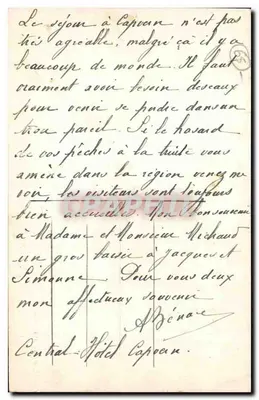 Le séjour à Capvern n'est pas
très agréable, malgré ça il y a
beaucoup de monde. Il faut
vraiment avoir besoin des eaux
pour venir se perdre dans un
trou pareil. Si le hasard
de vos pêches à la truite vous
amène dans la région venez me
voir, les visiteurs sont toujours
bien accueillis. Mon bon souvenir
à Madame et Monsieur Michaud
un gros baiser à Jacques et
Simonne Pour vous deux
mon affectueux souvenir
Central-Hôtel Capvern.